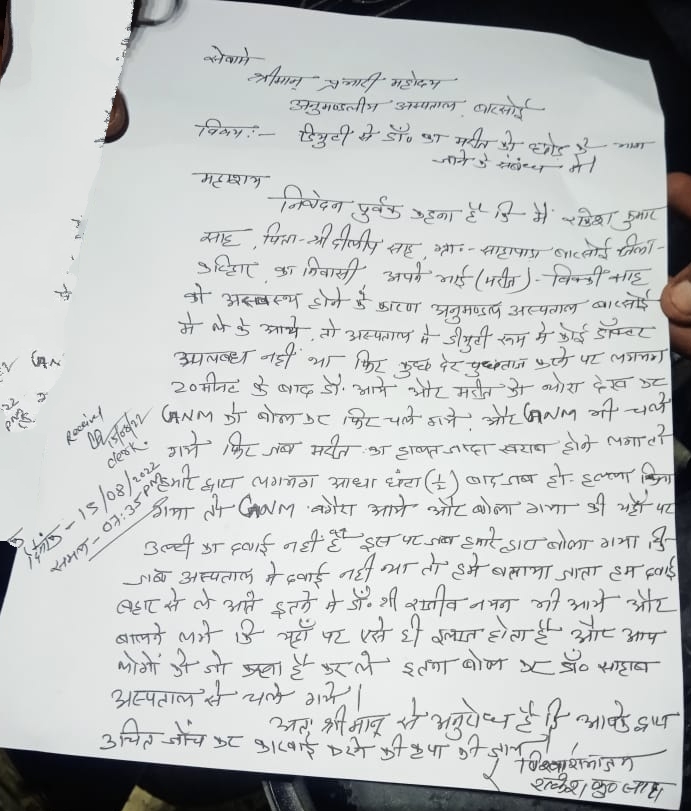 सेवामे
श्रीमान् प्रभारी महोदय
अनुमण्डलीय अस्पताल, बारसोई
विषय:- डियुटी से डॉ० का मरीज को छोड़ के भाग
जाने के संबंध मे।
महाशय
निवेदन पुर्वक कहना है कि मैं राकेश कुमार
साह, पिता- श्री दीलीप साह, ग्रा:- साहापाड़ा बारसोई जिला-
कटिहार, का निवासी अपने भाई (मरीज)- विक्की साह
को अस्वस्थ होने के कारण अनुमण्डल अस्पताल बारसोई
मे ले के आये, तो अस्पताल मे डीयुटी रूम मे कोई डॉक्टर
उपलब्ध नहीं था फिर कुछ देर पुछताछ करने पर लगभग
20 मीनट के बाद डॉ. आये और मरीज को थोरा देख कर
GNM को बोल कर फिर चले गये, और GNM भी चले
गये फिर जब मरीज का हालत जादा खराब होने लगा तो
हमारे द्वारा लगभग आधा घंटा (1/2) बाद जब हो-हल्ला किया
गया तो GNM वगैरा आये और बोला गया की यहाँ पर
उल्टी का दवाई नहीं है इस पर जब हमारे द्वारा बोला गया कि
जब अस्पताल मे दवाई नहीं था तो हमे बताया जाता हम दवाई
बहार से ले आते इतने मे डॉ. श्री राजीव नयन भी आये और
बोलने लगे कि यहाँ पर एसे ही इलाज होता है और आप
लोगों को जो करना है कर ले इतना बोल कर डॉ० साहाब
अस्पताल से चले गये।
अतः श्रीमान् से अनुरोध है कि आपके द्वारा
उचित जाँच कर कारवाई करने की कृपा की जाय।
विश्वासभाजन
राकेश कु० साह
Received
15/08/22
desk.
दिनांक - 15/08/2022
समय - 07:35 PM
GN
22
PM